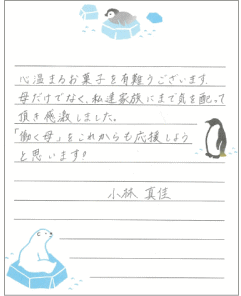 心温まるお菓子を有難うございます。
母だけでなく、私達家族にまで気を配って
頂き感激しました。
「働く母」をこれからも応援しよう
と思います!
小林 真佳